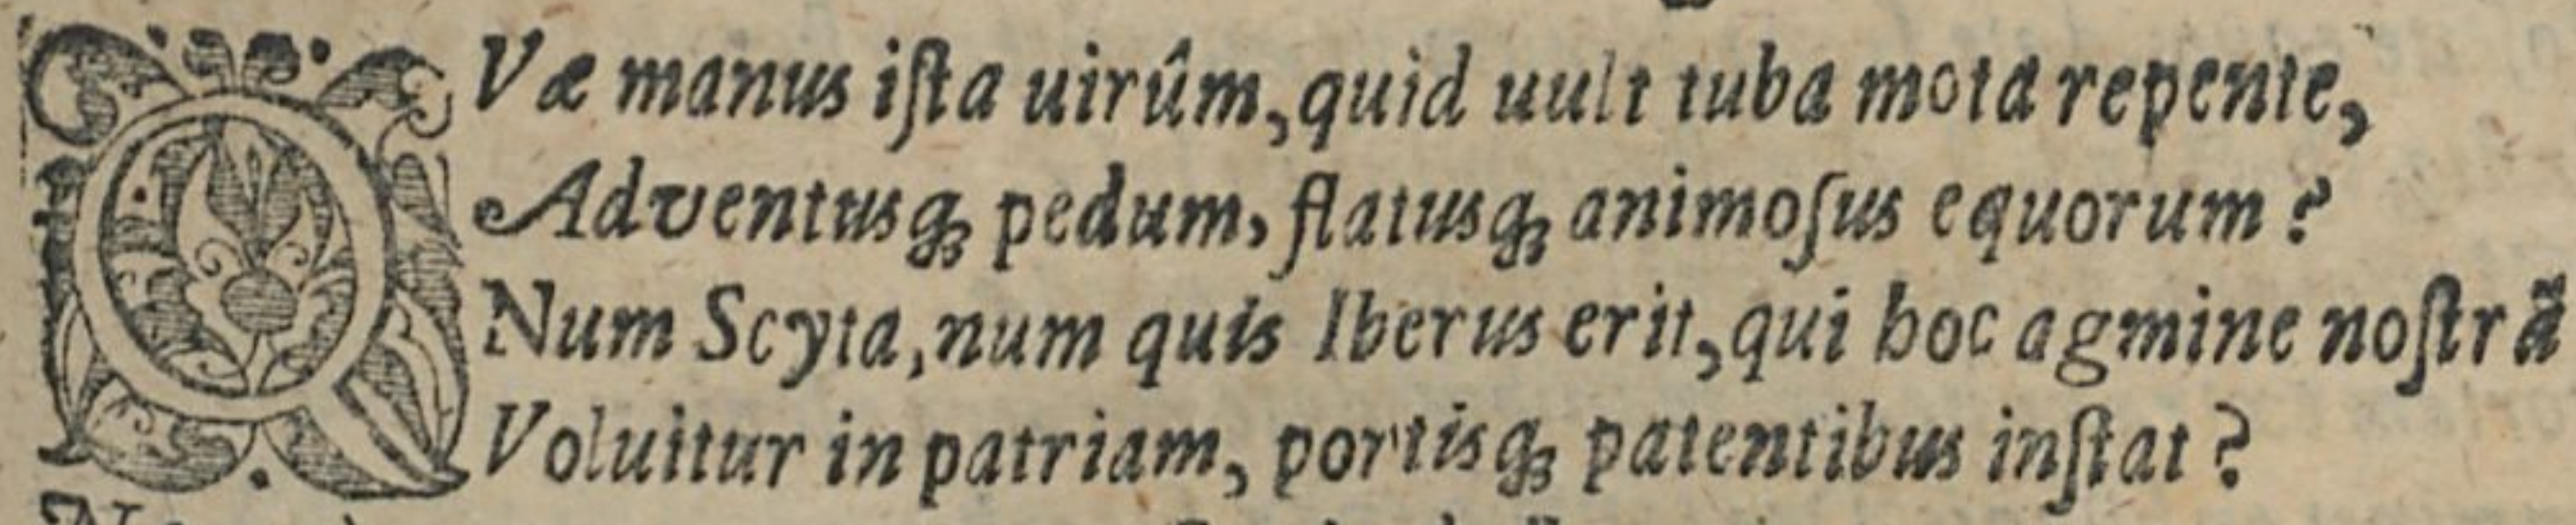 QVæ manus iſta uirûm, quid uult tuba mota repente,
Adventusq́; pedum, flatusq́; animoſus equorum?
Num Scyta, num quis Iberus erit, qui hoc agmine noſtrã
Voluitur in patriam, portisq́; patentibus inſtat?